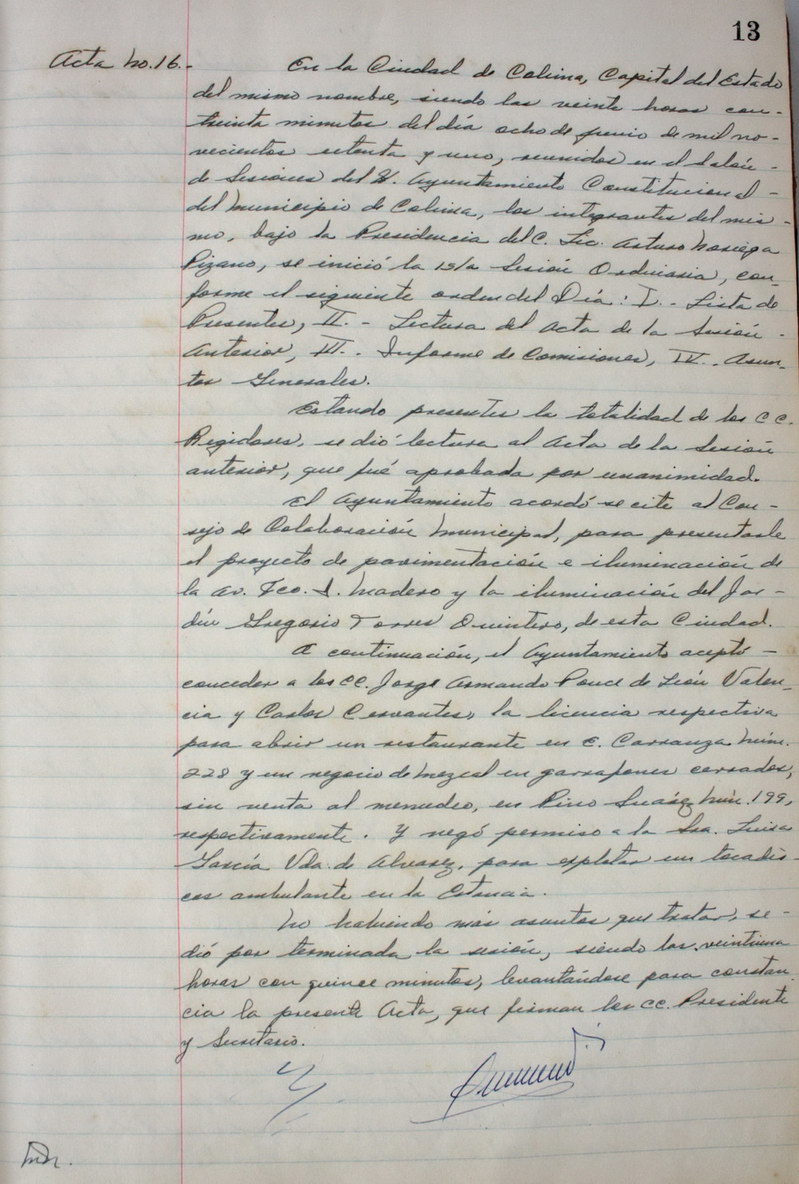 13
Acta No. 16.- En la Ciudad de Colima, Capital del Estado
del mismo nombre, siendo las veinte horas con-
treinta minutos del día ocho de junio de mil no-
vecientos setenta y uno, reunidos en el Salón-
de Sesiones del H. Ayuntamiento Constitucional-
del Municipio de Colima, los integrantes del mis-
mo, bajo la Presidencia del C. Lic. Arturo Noriega
Pizano, se inició la 15/a Sesión Ordinaria, con-
forme el siguiente orden del Día: I.- Lista de
Presentes, II.- Lectura del Acta de la Sesión-
Anterior, III.- Informe de Comisiones, IV.- Asun-
tos Generales.
Estando presentes la totalidad de los CC.
Regidores, se dió lectura al Acta de la Sesión
anterior, que fué aprobada por unanimidad.
El Ayuntamiento acordó se cite al Con-
sejo de Colaboración Municipal, para presentarle
el proyecto de pavimentación e iluminación de
la Av. Fco. I. Madero y la iluminación del Jar-
dín Gregorio Torres Quintero, de esta Ciudad.
A continuación, el Ayuntamiento aceptó-
conceder a los CC. Jorge Armando Ponce de León Valen-
cia y Carlos Cervantes, la licencia respectiva
para abrir un restaurante en C. Carranza Núm.
228 y un negocio de Mezcal en garrafones cerrados,
sin venta al menudeo, en Pino Suárez Núm. 199,
respectivamente. Y negó permiso a la Sra. Luisa
García Vda. de Alvarez, para explotar un tocadis-
cos ambulante en la Estancia.
No habiendo más asuntos que tratar, se-
dió por terminada la sesión, siendo las veintiuna
horas con quince minutos, levantándose para constan-
cia la presente Acta, que firman los CC. Presidente
y Secretario.